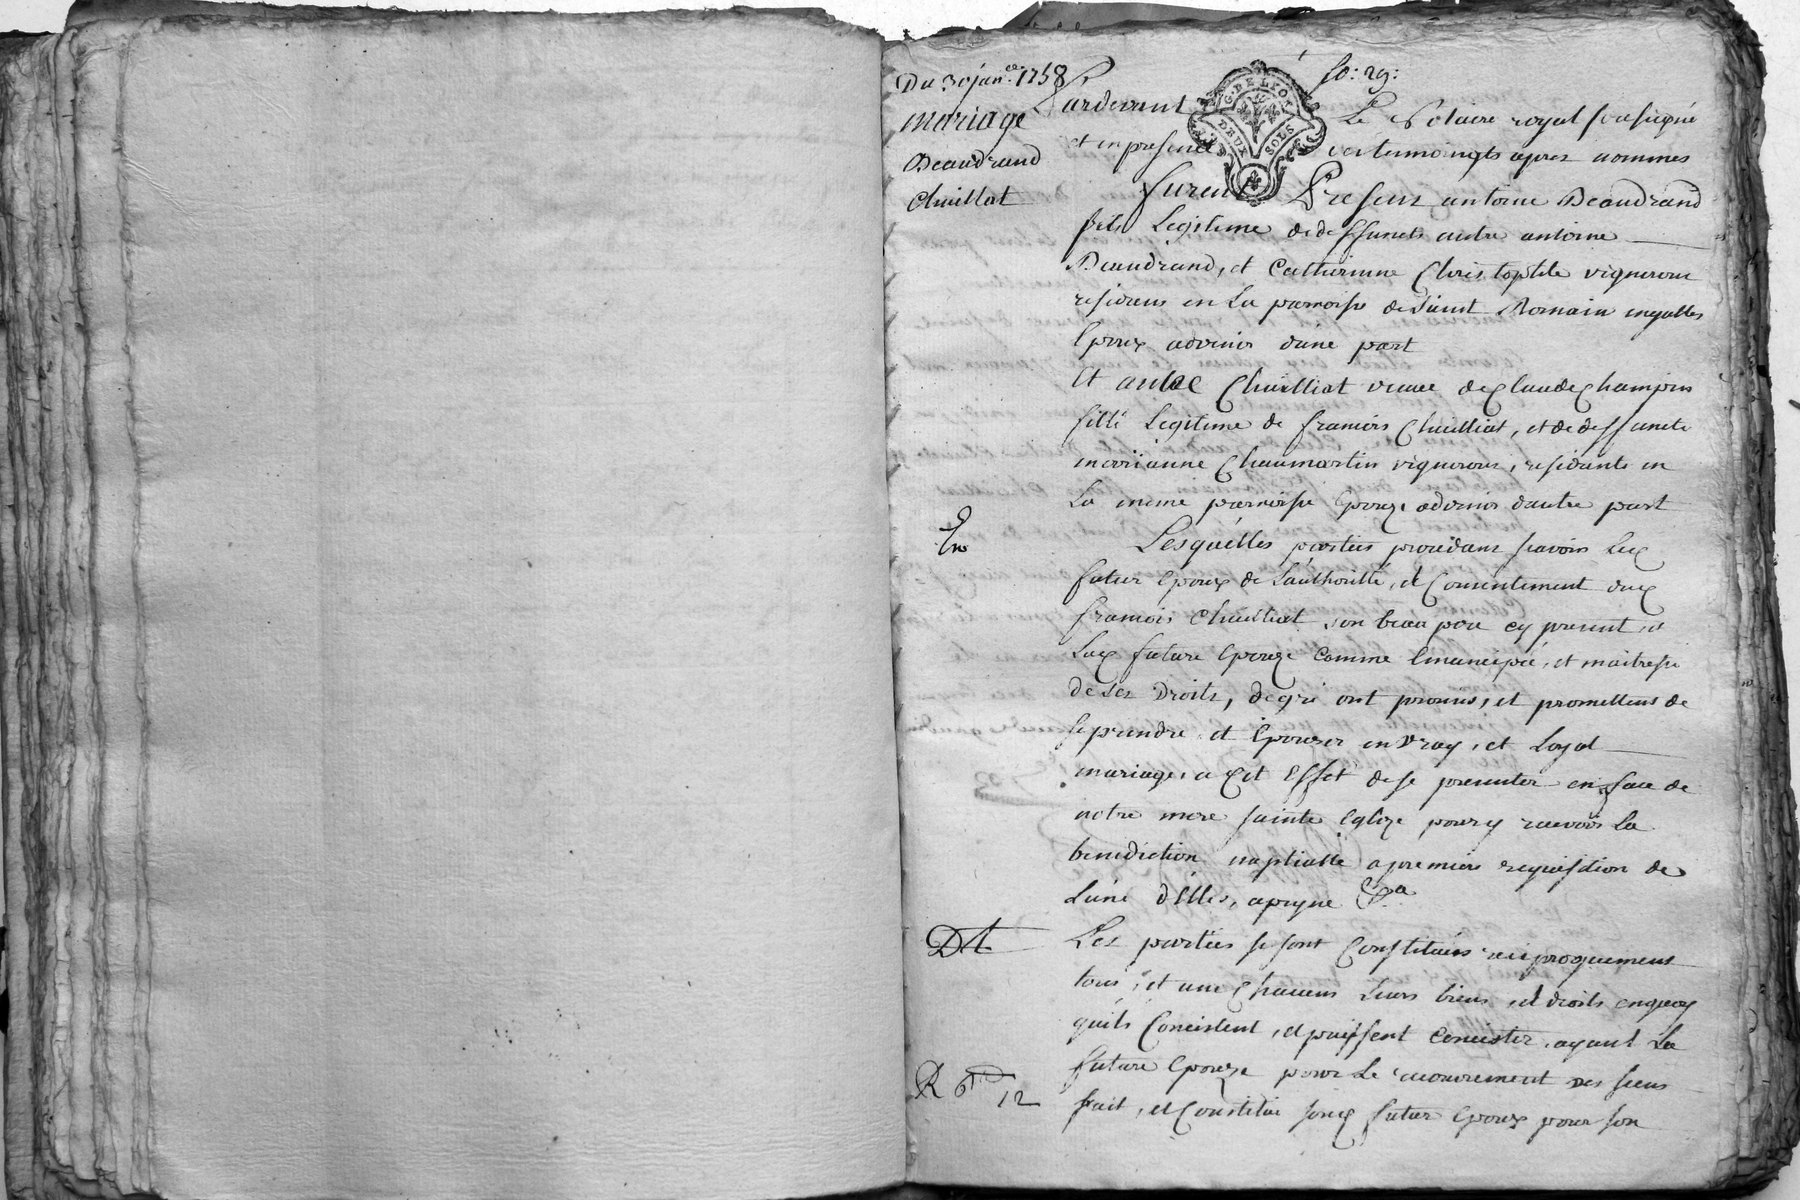 Du 30 jan.ce 1758
mariage
Beaudrand
Chuillat
fo: 29:
G. DE LYON
DEUX SOLS
Pardevant Le Notaire royal soussigné
et en presence des temoingts apres nommes
furent Presens antoine Beaudrand
fils Legitime de deffunets autre antoine
Beaudrand, et Catherinne Christophle vigneron
residens en La parroisse de saint Romain
Epoux advenir dune part
Et Chuilliat veuve de Claude Champin
fille Legitime de francois Chuilliat, et de deffuncte
marianne Chaumartin vigneron, residante en
La meme parroisse Epouze advenir dautre part
En
Lesquélles parties procédans scavoir Le
futur Epoux de Láuthoritté, et Consentement du
francois Chuilliat son beau pere cy present, et
La future Epouze comme Emancipée, et maitresse
de ses Droits, de gré ont promis, et promettens de
se prendre et Epouzer en vray, et Loyal
mariage, a Cet Effet de se presenter en face de
notre mere sainte Eglize pour y recevoir La
benediction nuptialle a premiere requisition de
Lúne dElles, a peyne &a
Dt
Les parties se sont Constituées reciproquement
tous, et une Chacuns Leurs biens et droits en quoy
quils Consistent, et puissent consister, ayant La
R 6 12
future Epouze pour Le recouvrement des siens
fait, et Constitué son futur Epoux pour son